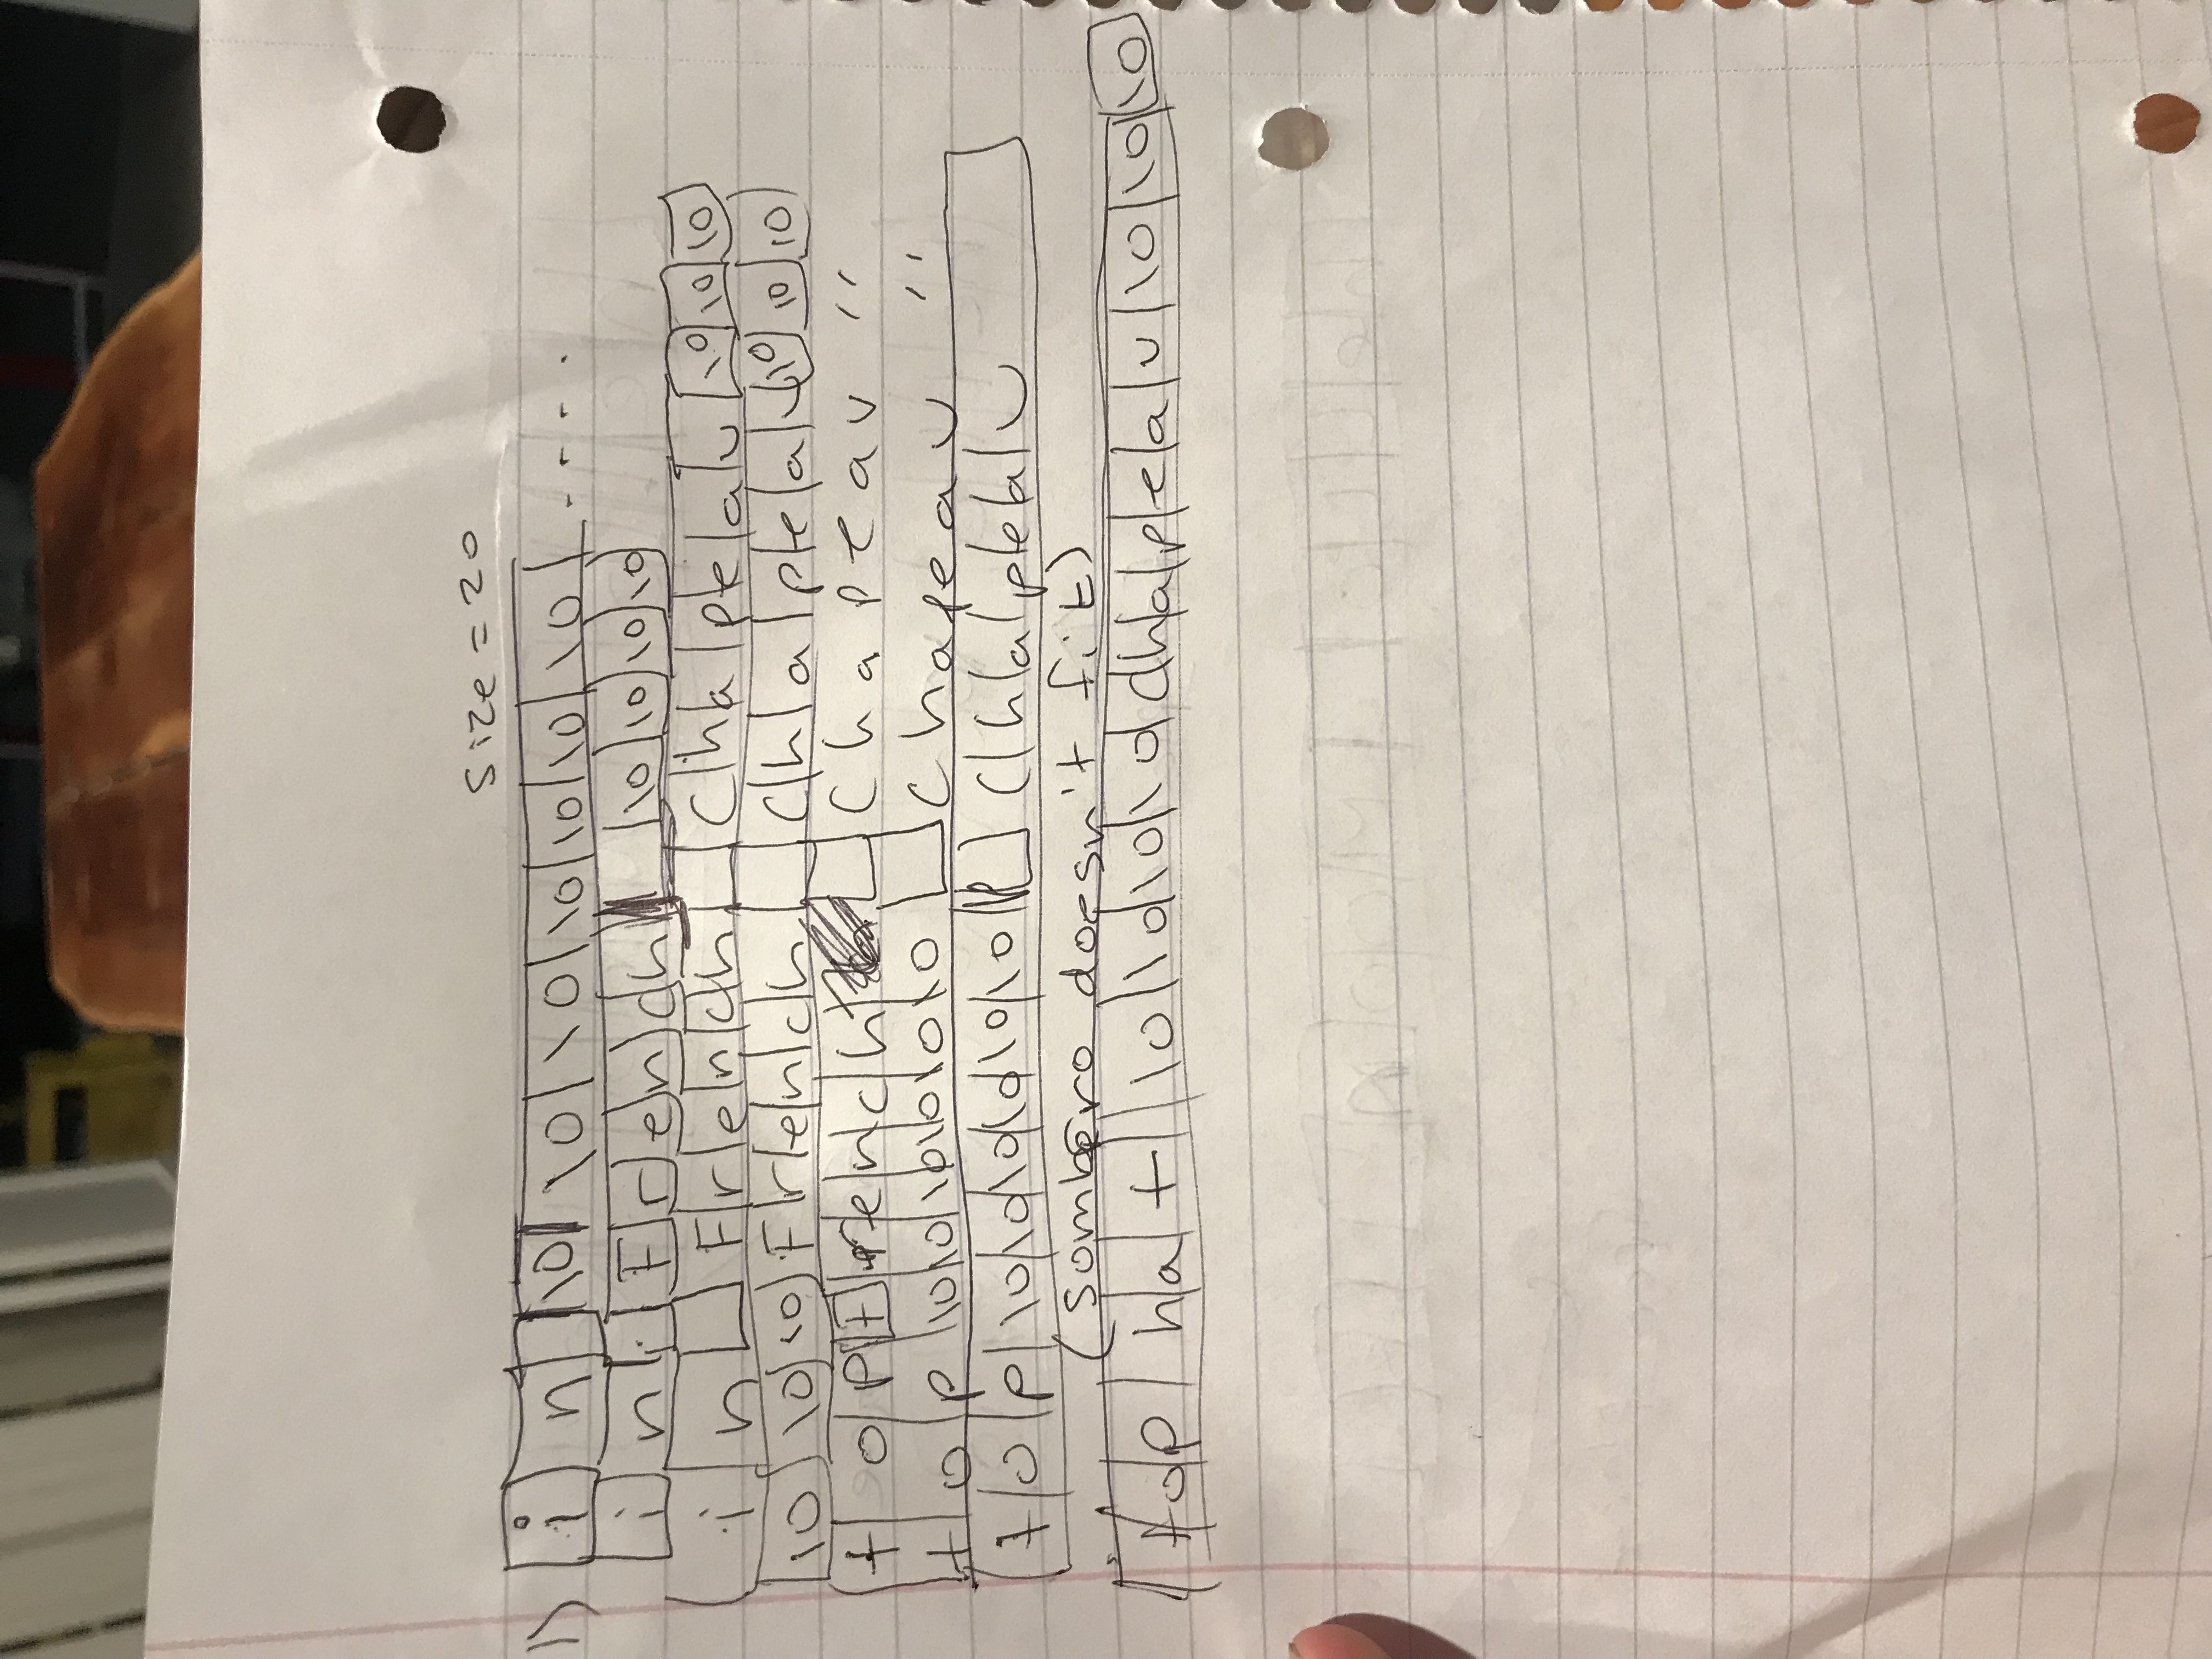 size = 20
1) i n \0 \0 \0 \0 \0 \0 \0 ....
i n F r e n c h \0 \0 \0 \0
i n F r e n c h C h a p e a u \0 \0 \0
\0 \0 \0 F r e n c h C h a p e a u \0 \0 \0
t o p F r e n c h C h a p e a u "
t o p \0 \0 \0 \0 \0 \0 C h a p e a u "
t o p \0 \0 \0 \0 \0 \0 C h a p e a u
(sombrero doesn't fit)
t o p h a t \0 \0 \0 \0 C h a p e a u \0 \0 \0